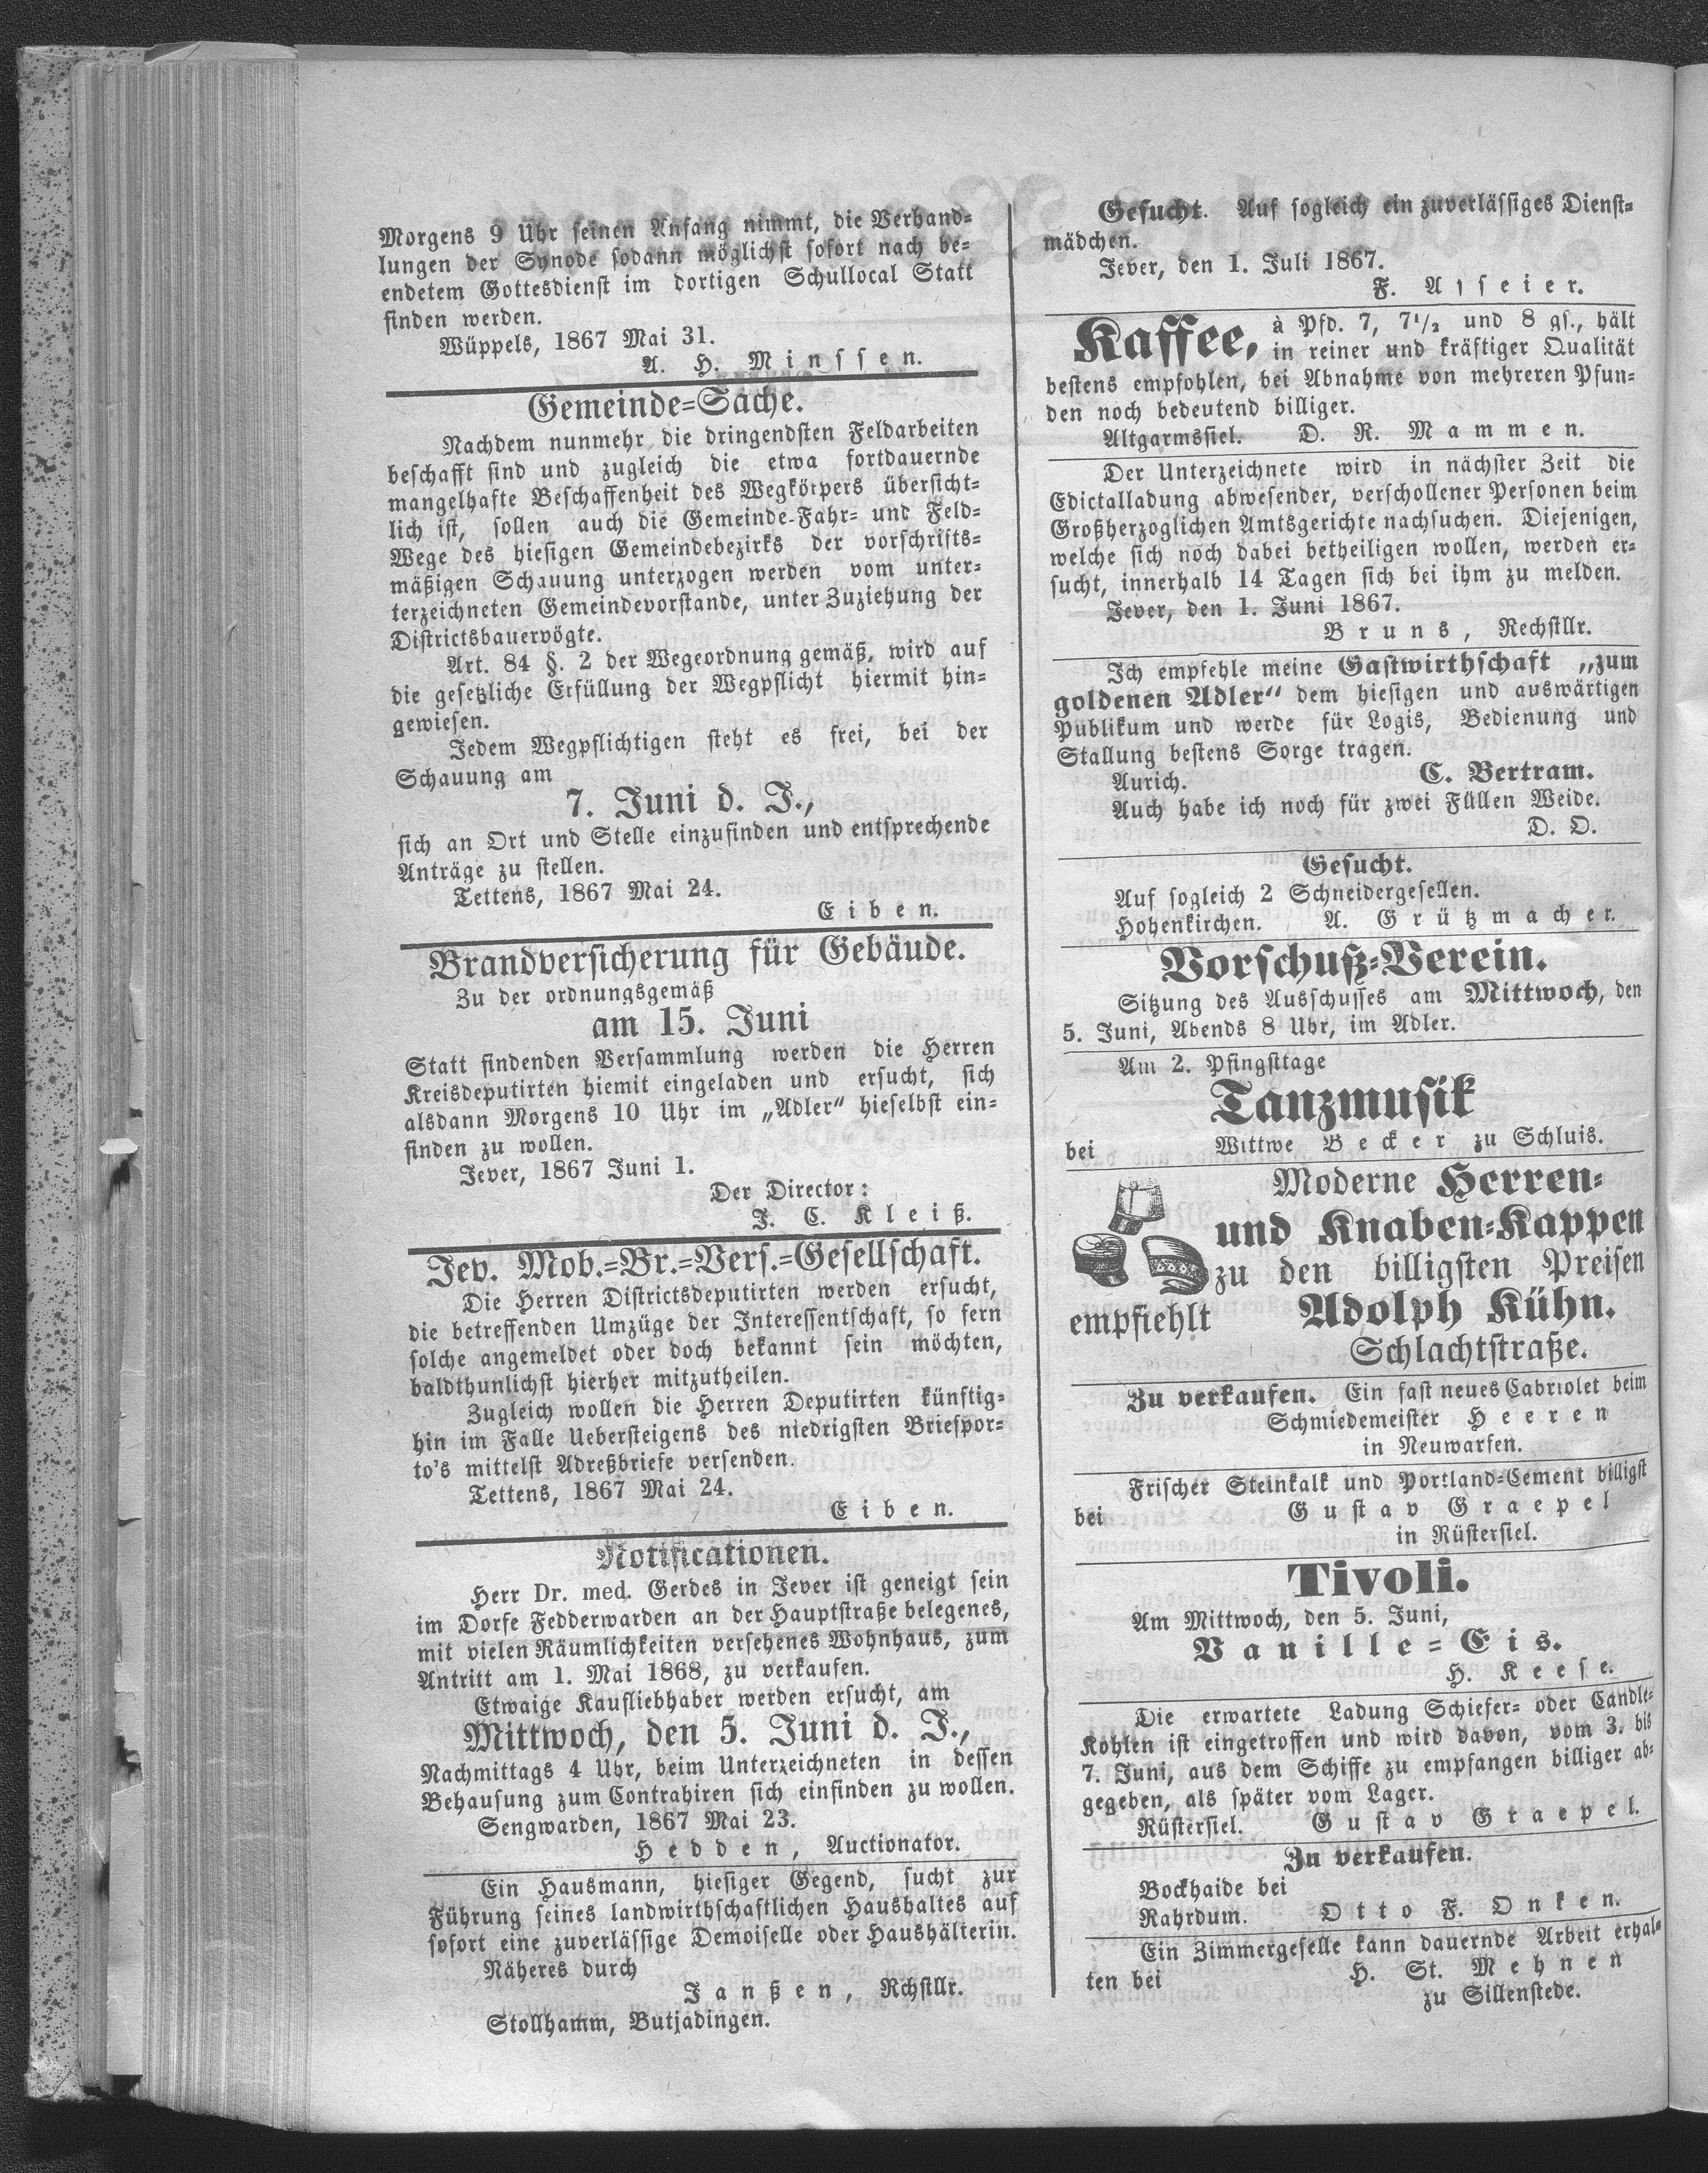 Morgens 9 Uhr seinen Anfang nimmt, die Verhand-
lungen der Synode sodann möglichst sofort nach be-
endetem Gottesdienst im dortigen Schullocal Statt
finden werden.
Wüppels, 1867 Mai 31.
A. H. Minssen.
Gemeinde-Sache.
Nachdem nunmehr die dringendsten Feldarbeiten
beschafft sind und zugleich die etwa fortdauernde
mangelhafte Beschaffenheit des Wegkörpers übersicht-
lich ist, sollen auch die Gemeinde-Fahr- und Feld-
Wege des hiesigen Gemeindebezirks der vorschrifts-
mäßigen Schauung unterzogen werden vom unter-
terzeichneten Gemeindevorstande, unter Zuziehung der
Districtsbauervögte.
Art. 84 §. 2 der Wegeordnung gemäß, wird auf
die gesetzliche Erfüllung der Wegpflicht hiermit hin-
gewiesen.
Jedem Wegpflichtigen steht es frei, bei der
Schauung am
7. Juni d. J.,
sich an Ort und Stelle einzufinden und entsprechende
Anträge zu stellen.
Tettens, 1867 Mai 24.
Eiben.
Brandversicherung für Gebäude.
Zu der ordnungsgemäß
am 15. Juni
Statt findenden Versammlung werden die Herren
Kreisdeputirten hiemit eingeladen und ersucht, sich
alsdann Morgens 10 Uhr im „Adler“ hieselbst ein-
finden zu wollen.
Jever, 1867 Juni 1.
Der Director:
J. C. Kleiß.
Jev. Mob.-Br.-Vers.-Gesellschaft.
Die Herren Districtsdeputirten werden ersucht,
die betreffenden Umzüge der Interessentschaft, so fern
solche angemeldet oder doch bekannt sein möchten,
baldthunlichst hierher mitzutheilen.
Zugleich wollen die Herren Deputirten künftig-
hin im Falle Uebersteigens des niedrigsten Briefpor-
to's mittelst Adreßbriefe versenden.
Tettens, 1867 Mai 24.
Eiben.
Notificationen.
Herr Dr. med. Gerdes in Jever ist geneigt sein
im Dorfe Fedderwarden an der Hauptstraße belegenes,
mit vielen Räumlichkeiten versehenes Wohnhaus, zum
Antritt am 1. Mai 1868, zu verkaufen.
Etwaige Kaufliebhaber werden ersucht, am
Mittwoch, den 5. Juni d. J.,
Nachmittags 4 Uhr, beim Unterzeichneten in dessen
Behausung zum Contrahiren sich einfinden zu wollen.
Sengwarden, 1867 Mai 23.
Hedden, Auctionator.
Ein Hausmann, hiesiger Gegend, sucht zur
Führung seines landwirthschaftlichen Haushaltes auf
sofort eine zuverlässige Demoiselle oder Haushälterin.
Näheres durch
Janßen, Rchstllr.
Stollhamm, Butjadingen.
Gesucht. Auf sogleich ein zuverlässiges Dienst-
mädchen.
Jever, den 1. Juli 1867.
F.
Kaffee, à Pfd. 7, 7 1/2 und 8 gs., hält
in reiner und kräftiger Qualität
bestens empfohlen, bei Abnahme von mehreren Pfun-
den noch bedeutend billiger.
Altgarmssiel. D. R. Mammen.
Der Unterzeichnete wird in nächster Zeit die
Edictalladung abwesender, verschollener Personen beim
Großherzoglichen Amtsgerichte nachsuchen. Diejenigen,
welche sich noch dabei betheiligen wollen, werden er-
sucht, innerhalb 14 Tagen sich bei ihm zu melden.
Jever, den 1. Juni 1867.
Bruns, Rechstllr.
Ich empfehle meine Gastwirthschaft „zum
goldenen Adler“ dem hiesigen und auswärtigen
Publikum und werde für Logis, Bedienung und
Stallung bestens Sorge tragen.
Aurich. C. Bertram.
Auch habe ich noch für zwei Füllen Weide.
D. O.
Gesucht.
Auf sogleich 2 Schneidergesellen.
Hohenkirchen. A. Grützmacher.
Vorschuß-Verein.
Sitzung des Ausschusses am Mittwoch, den
5. Juni, Abends 8 Uhr, im Adler.
Am 2. Pfingsttage
Tanzmusik
bei Wittwe Becker zu Schluis.
Moderne Herren-
und Knaben-Kappen
zu den billigsten Preisen
empfiehlt Adolph Kühn.
Schlachtstraße.
Zu verkaufen. Ein fast neues Cabriolet beim
Schmiedemeister Heeren
in Neuwarfen.
Frischer Steinkalk und Portland-Cement billigst
bei Gustav Graepel
in Rüstersiel.
Tivoli.
Am Mittwoch, den 5. Juni,
Vanille-Eis.
H. Keese.
Die erwartete Ladung Schiefer- oder Candle-
Kohlen ist eingetroffen und wird davon, vom 3. bis
7. Juni, aus dem Schiffe zu empfangen billiger ab-
gegeben, als später vom Lager.
Rüstersiel. Gustav Graepel.
Zu verkaufen.
Bockhaide bei
Rahrdum. Otto F. Onken.
Ein Zimmergeselle kann dauernde Arbeit erhal-
ten bei H. St. Mehnen
zu Sillenstede.